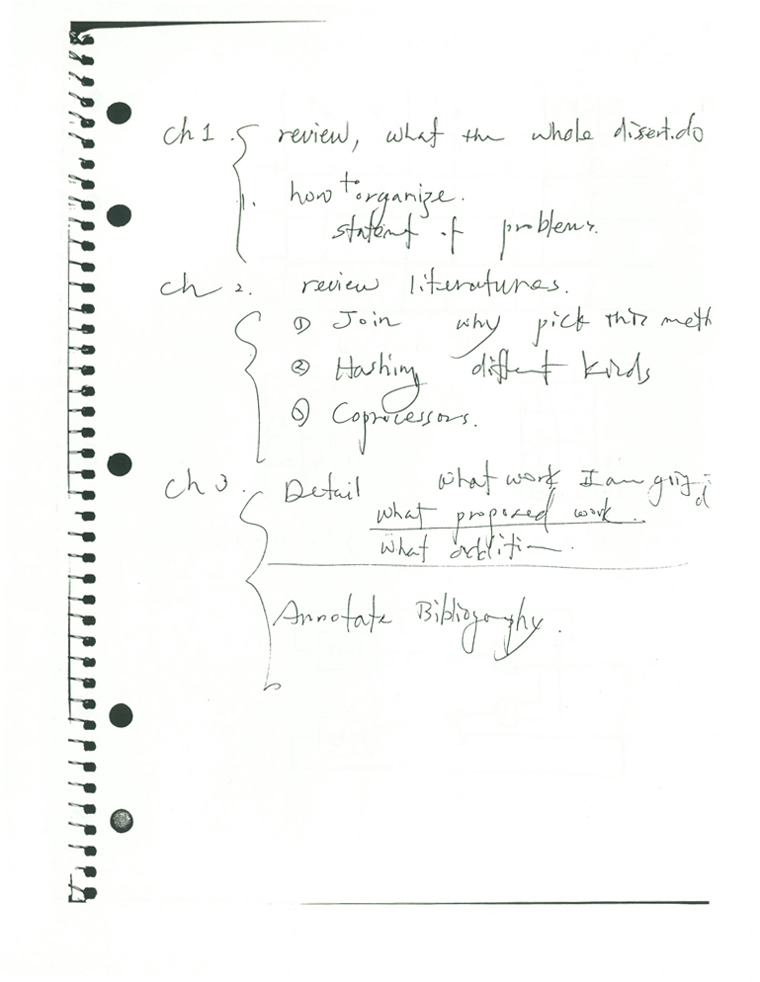 ch 1. review, what the whole disert. do
1. how to organize.
statent of problems.
ch 2. review literatures.
① Join why pick this meth
② Hashing different kinds
③ Coprocessors.
ch 3. Detail what work I am going d
what proposed work.
what addition.
Annotate Bibliography.